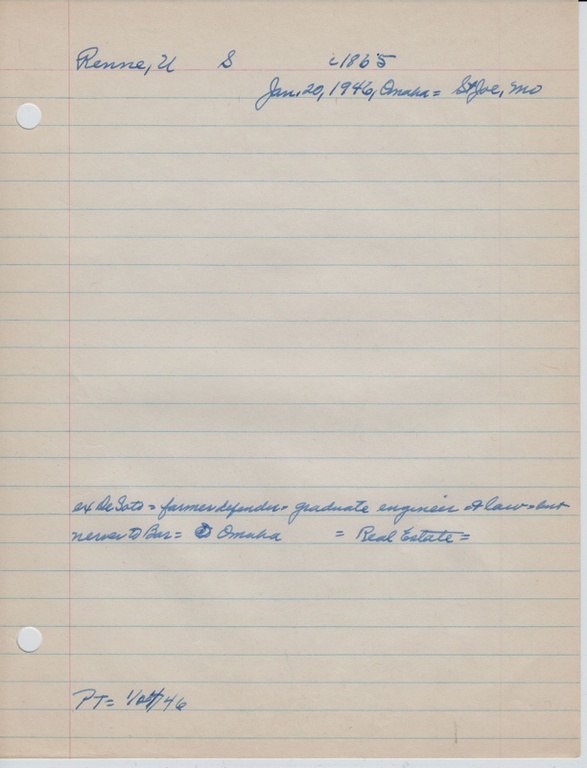 Renne, U S c1865
Jan. 20, 1946, Omaha = St Joe, Mo
ex De Soto = farmer defender = graduate engineer + law = but
never to Bar = Omaha = Real Estate =
PT = 1/ /46